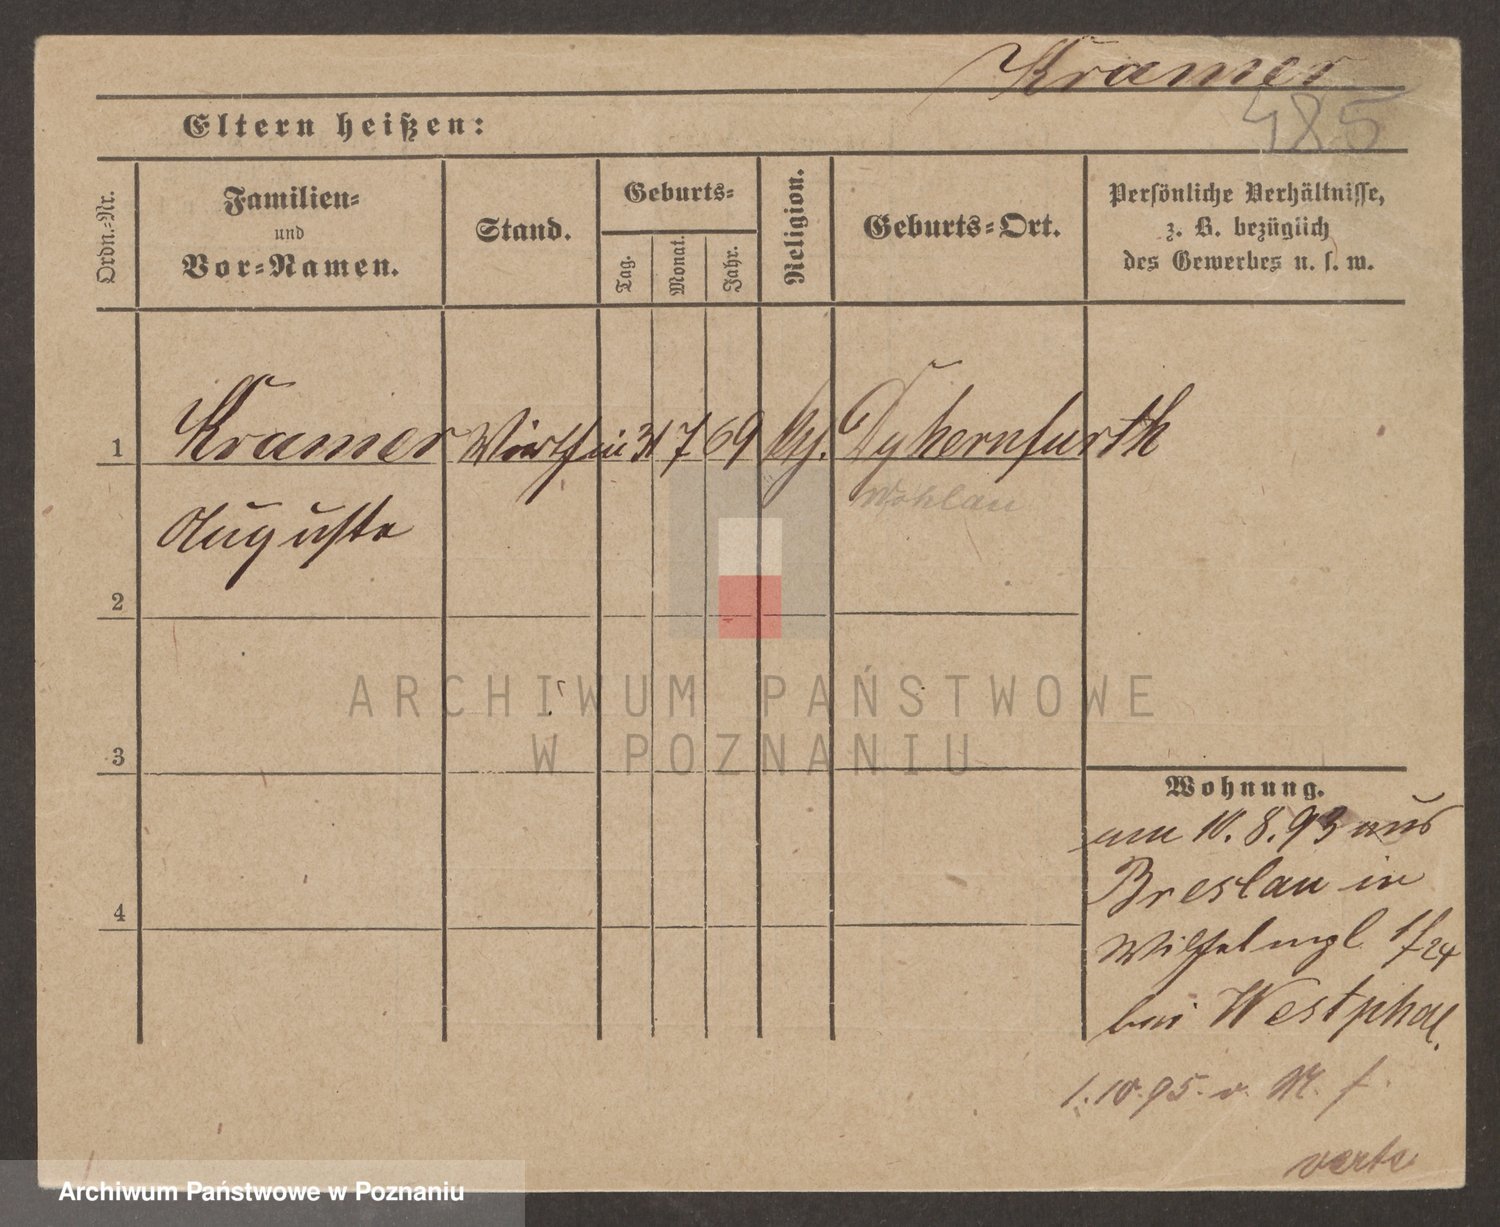 Kramer
485
Eltern heißen:
Ordn.-Nr.
Familien-
und
Vor-Namen.
Stand.
Geburts-
Tag.
Monat.
Jahr.
Religion.
Geburts-Ort.
Persönliche Verhältnisse,
z. B. bezüglich
des Gewerbes u. s. w.
1 Kramer Wirthin 31 7 69 Dyhernfurth
Wohlau
Auguste
2
3
4
ARCHIWUM PAŃSTWOWE
W POZNANIU
Wohnung.
am 10. 8. 93 aus
Breslau in
Wilhelmpl. 17/24
bei Westphal.
1. 10. 95. v. M. f.
verte
Archiwum Państwowe w Poznaniu